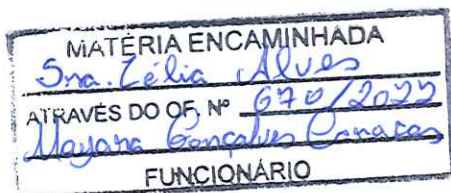 MATÉRIA ENCAMINHADA
Sra. Zélia Alves
ATRAVÉS DO OF. Nº 670/2022
Mayara Gonçalves Canaças
FUNCIONÁRIO